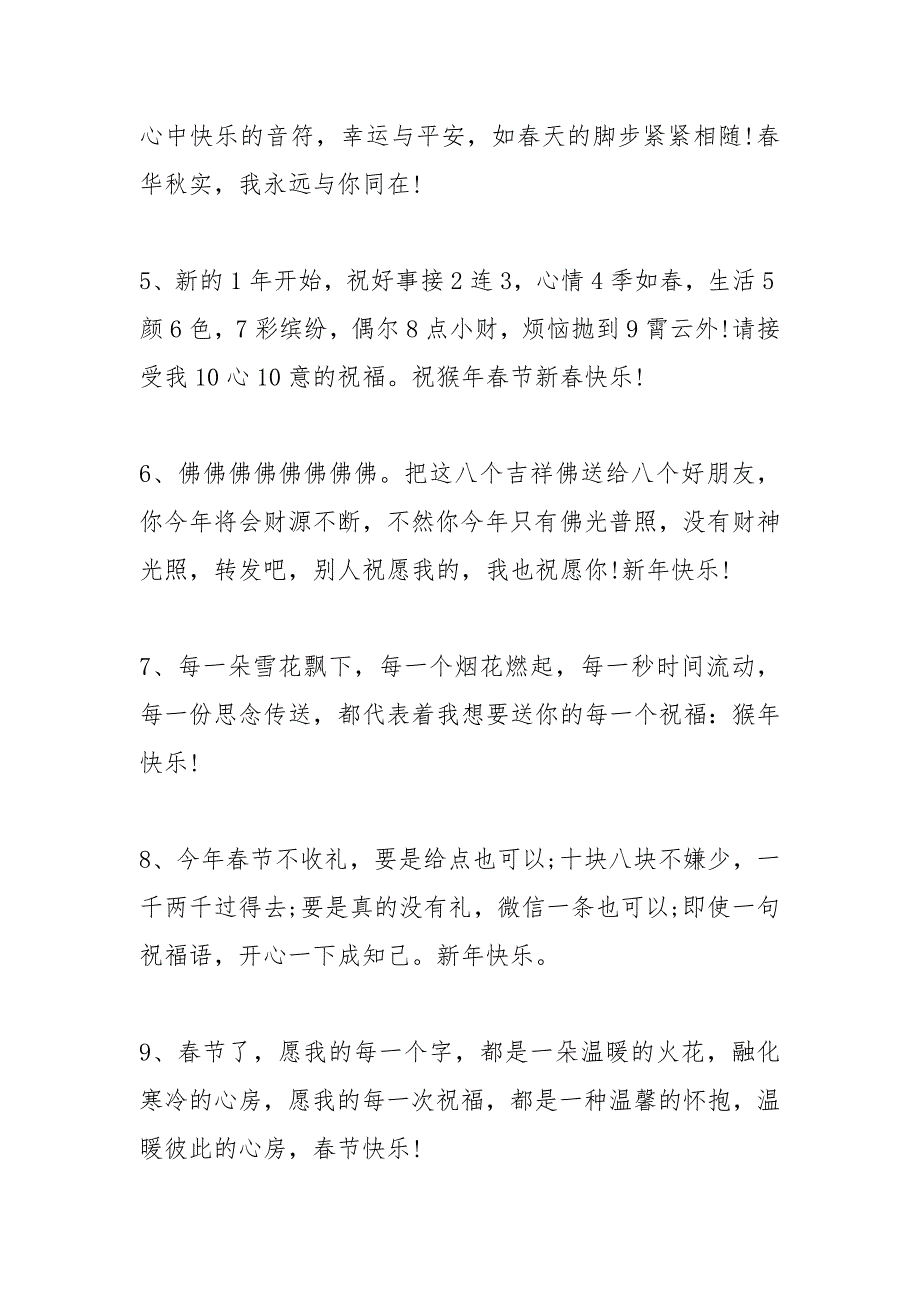 心中快乐的音符，幸运与平安，如春天的脚步紧紧相随!春
华秋实，我永远与你同在!
5、新的1年开始，祝好事接2连3，心情4季如春，生活5
颜6色，7彩缤纷，偶尔8点小财，烦恼抛到9霄云外!请接
受我10心10意的祝福。祝猴年春节新春快乐!
6、佛佛佛佛佛佛佛佛。把这八个吉祥佛送给八个好朋友，
你今年将会财源不断，不然你今年只有佛光普照，没有财神
光照，转发吧，别人祝愿我的，我也祝愿你!新年快乐!
7、每一朵雪花飘下，每一个烟花燃起，每一秒时间流动，
每一份思念传送，都代表着我想要送你的每一个祝福：猴年
快乐!
8、今年春节不收礼，要是给点也可以;十块八块不嫌少，一
千两千过得去;要是真的没有礼，微信一条也可以;即使一句
祝福语，开心一下成知己。新年快乐。
9、春节了，愿我的每一个字，都是一朵温暖的火花，融化
寒冷的心房，愿我的每一次祝福，都是一种温馨的怀抱，温
暖彼此的心房，春节快乐!